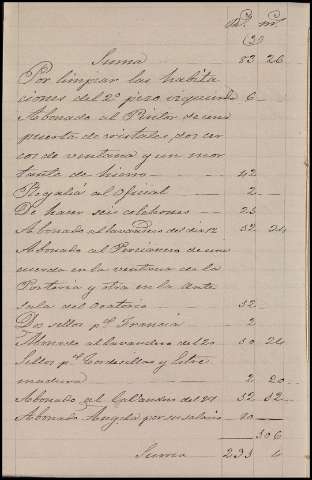 Rs. mrs.
Suma 83 26
Por limpiar las habita
ciones del 2º piso izquierda 6
Abonado al Pintor de com
puesto de cristales, dos cer
cos de ventana y un mon
tante de hierro 42
Regalía al Oficial 2
De hacer seis colchones 23
Abonado al lavandero del dia 12 52 24
Abonado al Persianero de una
cuerda en la ventana de la
Portería y otra en la Ante
sala del Oratorio 32
Dos sellos pa. Francia 2
Abonado al lavandero del 20 50 24
Sellos pa. Tordesillas y Estre
madura 2 20
Abonado al del 27 52 32
Abonado Angela por su salario 80
306
Suma 233 4